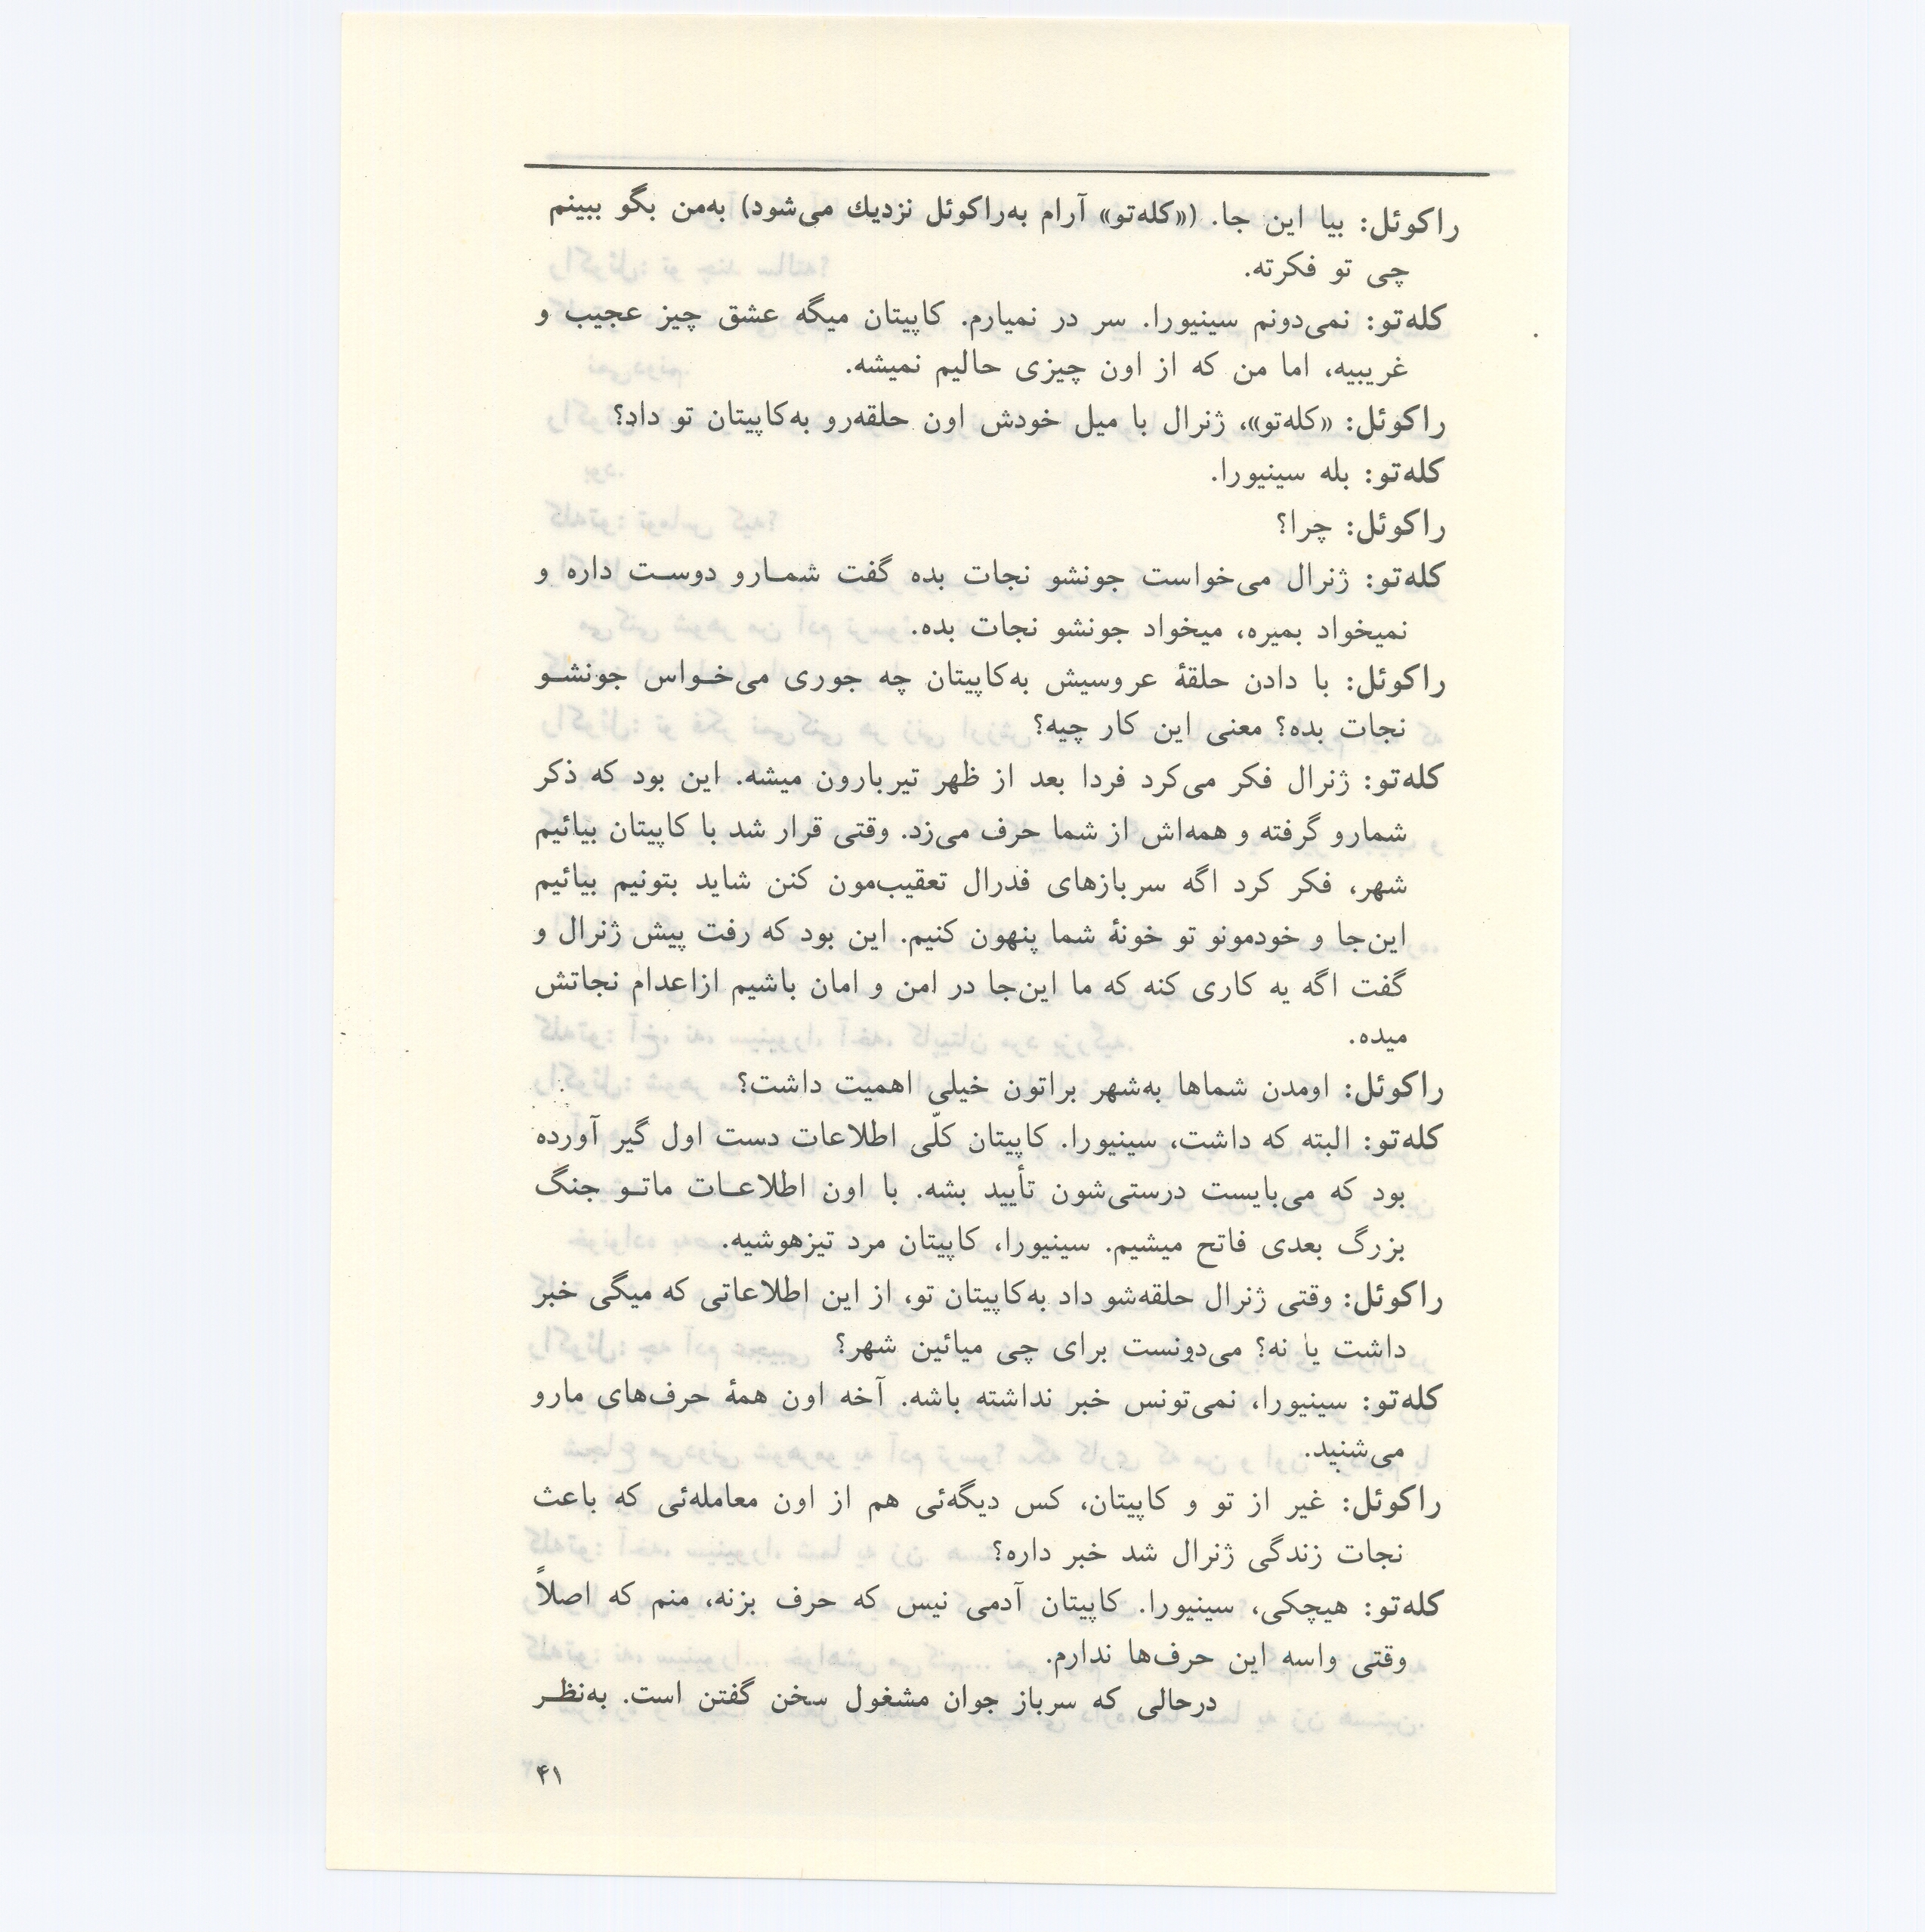 راکوئل: بیا این جا. («کله‌تو» آرام به‌راکوئل نزدیك می‌شود) به‌من بگو ببینم
چی تو فکرته.
کله‌تو: نمی‌دونم سینیورا. سر در نمیارم. کاپیتان میگه عشق چیز عجیب و
غریبیه، اما من که از اون چیزی حالیم نمیشه.
راکوئل: «کله‌تو»، ژنرال با میل خودش اون حلقه‌رو به‌کاپیتان تو داد؟
کله‌تو: بله سینیورا.
راکوئل: چرا؟
کله‌تو: ژنرال می‌خواست جونشو نجات بده گفت شمـارو دوسـت داره و
نمیخواد بمیره، میخواد جونشو نجات بده.
راکوئل: با دادن حلقهٔ عروسیش به‌کاپیتان چه جوری می‌خـواس جونشـو
نجات بده؟ معنی این کار چیه؟
کله‌تو: ژنرال فکر می‌کرد فردا بعد از ظهر تیربارون میشه. این بود که ذکر
شمارو گرفته و همه‌اش از شما حرف می‌زد. وقتی قرار شد با کاپیتان بیائیم
شهر، فکر کرد اگه سربازهای فدرال تعقیب‌مون کنن شاید بتونیم بیائیم
این‌جا و خودمونو تو خونهٔ شما پنهون کنیم. این بود که رفت پیش ژنرال و
گفت اگه یه کاری کنه که ما این‌جا در امن و امان باشیم ازاعدام نجاتش
میده.
راکوئل: اومدن شماها به‌شهر براتون خیلی اهمیت داشت؟
کله‌تو: البته که داشت، سینیورا. کاپیتان کلّی اطلاعات دست اول گیر آورده
بود که می‌بایست درستی‌شون تأیید بشه. با اون اطلاعـات ماتـو جنگ
بزرگ بعدی فاتح میشیم. سینیورا، کاپیتان مرد تیزهوشیه.
راکوئل: وقتی ژنرال حلقه‌شو داد به‌کاپیتان تو، از این اطلاعاتی که میگی خبر
داشت یا نه؟ می‌دونست برای چی میائین شهر؟
کله‌تو: سینیورا، نمی‌تونس خبر نداشته باشه. آخه اون همهٔ حرف‌های مارو
می‌شنید.
راکوئل: غیر از تو و کاپیتان، کس دیگه‌ئی هم از اون معامله‌ئی که باعث
نجات زندگی ژنرال شد خبر داره؟
کله‌تو: هیچکی، سینیورا. کاپیتان آدمی نیس که حرف بزنه، منم که اصلاً
وقتی واسه این حرف‌ها ندارم.
درحالی که سرباز جوان مشغول سخن گفتن است. به‌نظـر
۴۱